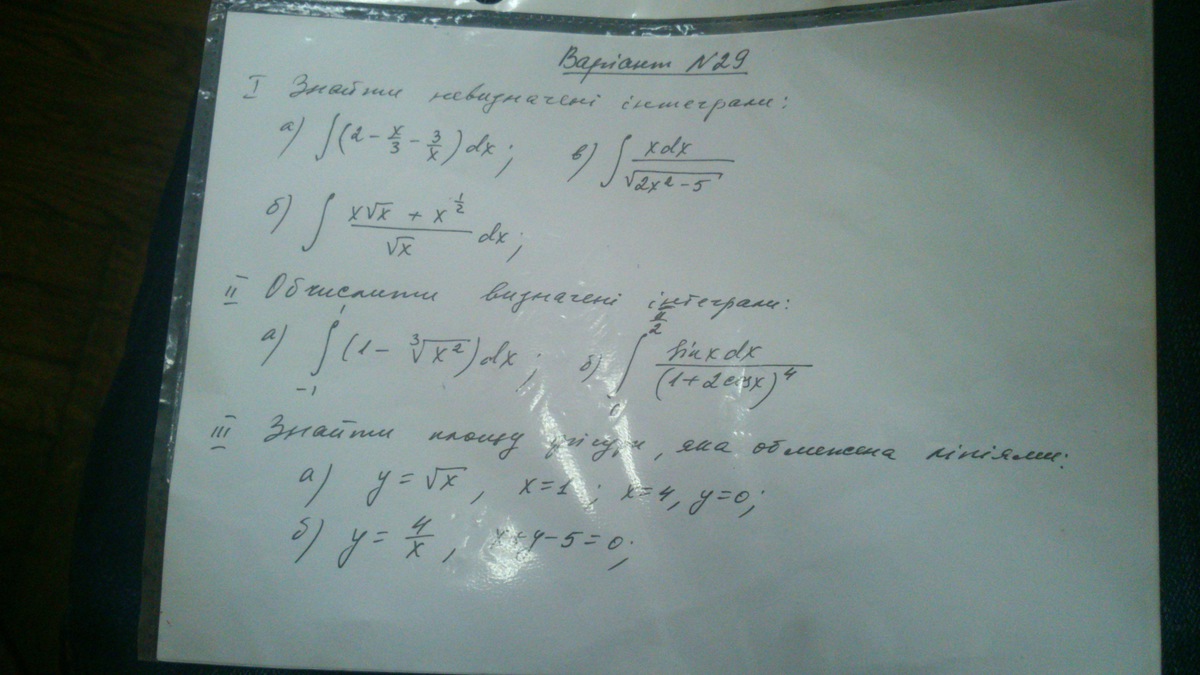 Варіант N29
I Знайти невизначені інтеграли:
а) ∫(2 - x/3 - 3/x)dx; в) ∫ xdx/√(2x² - 5)
б) ∫ (x√x + x^(1/2))/√x dx;
II Обчислити визначені інтеграли:
а) ∫_{-1}^{1} (1 - ∛(x²))dx; б) ∫_{0}^{π/2} sinxdx/(1+2cosx)⁴
III Знайти площу фігури, яка обмежена лініями:
а) y = √x, x=1; x=4, y=0;
б) y = 4/x, x+y-5=0;